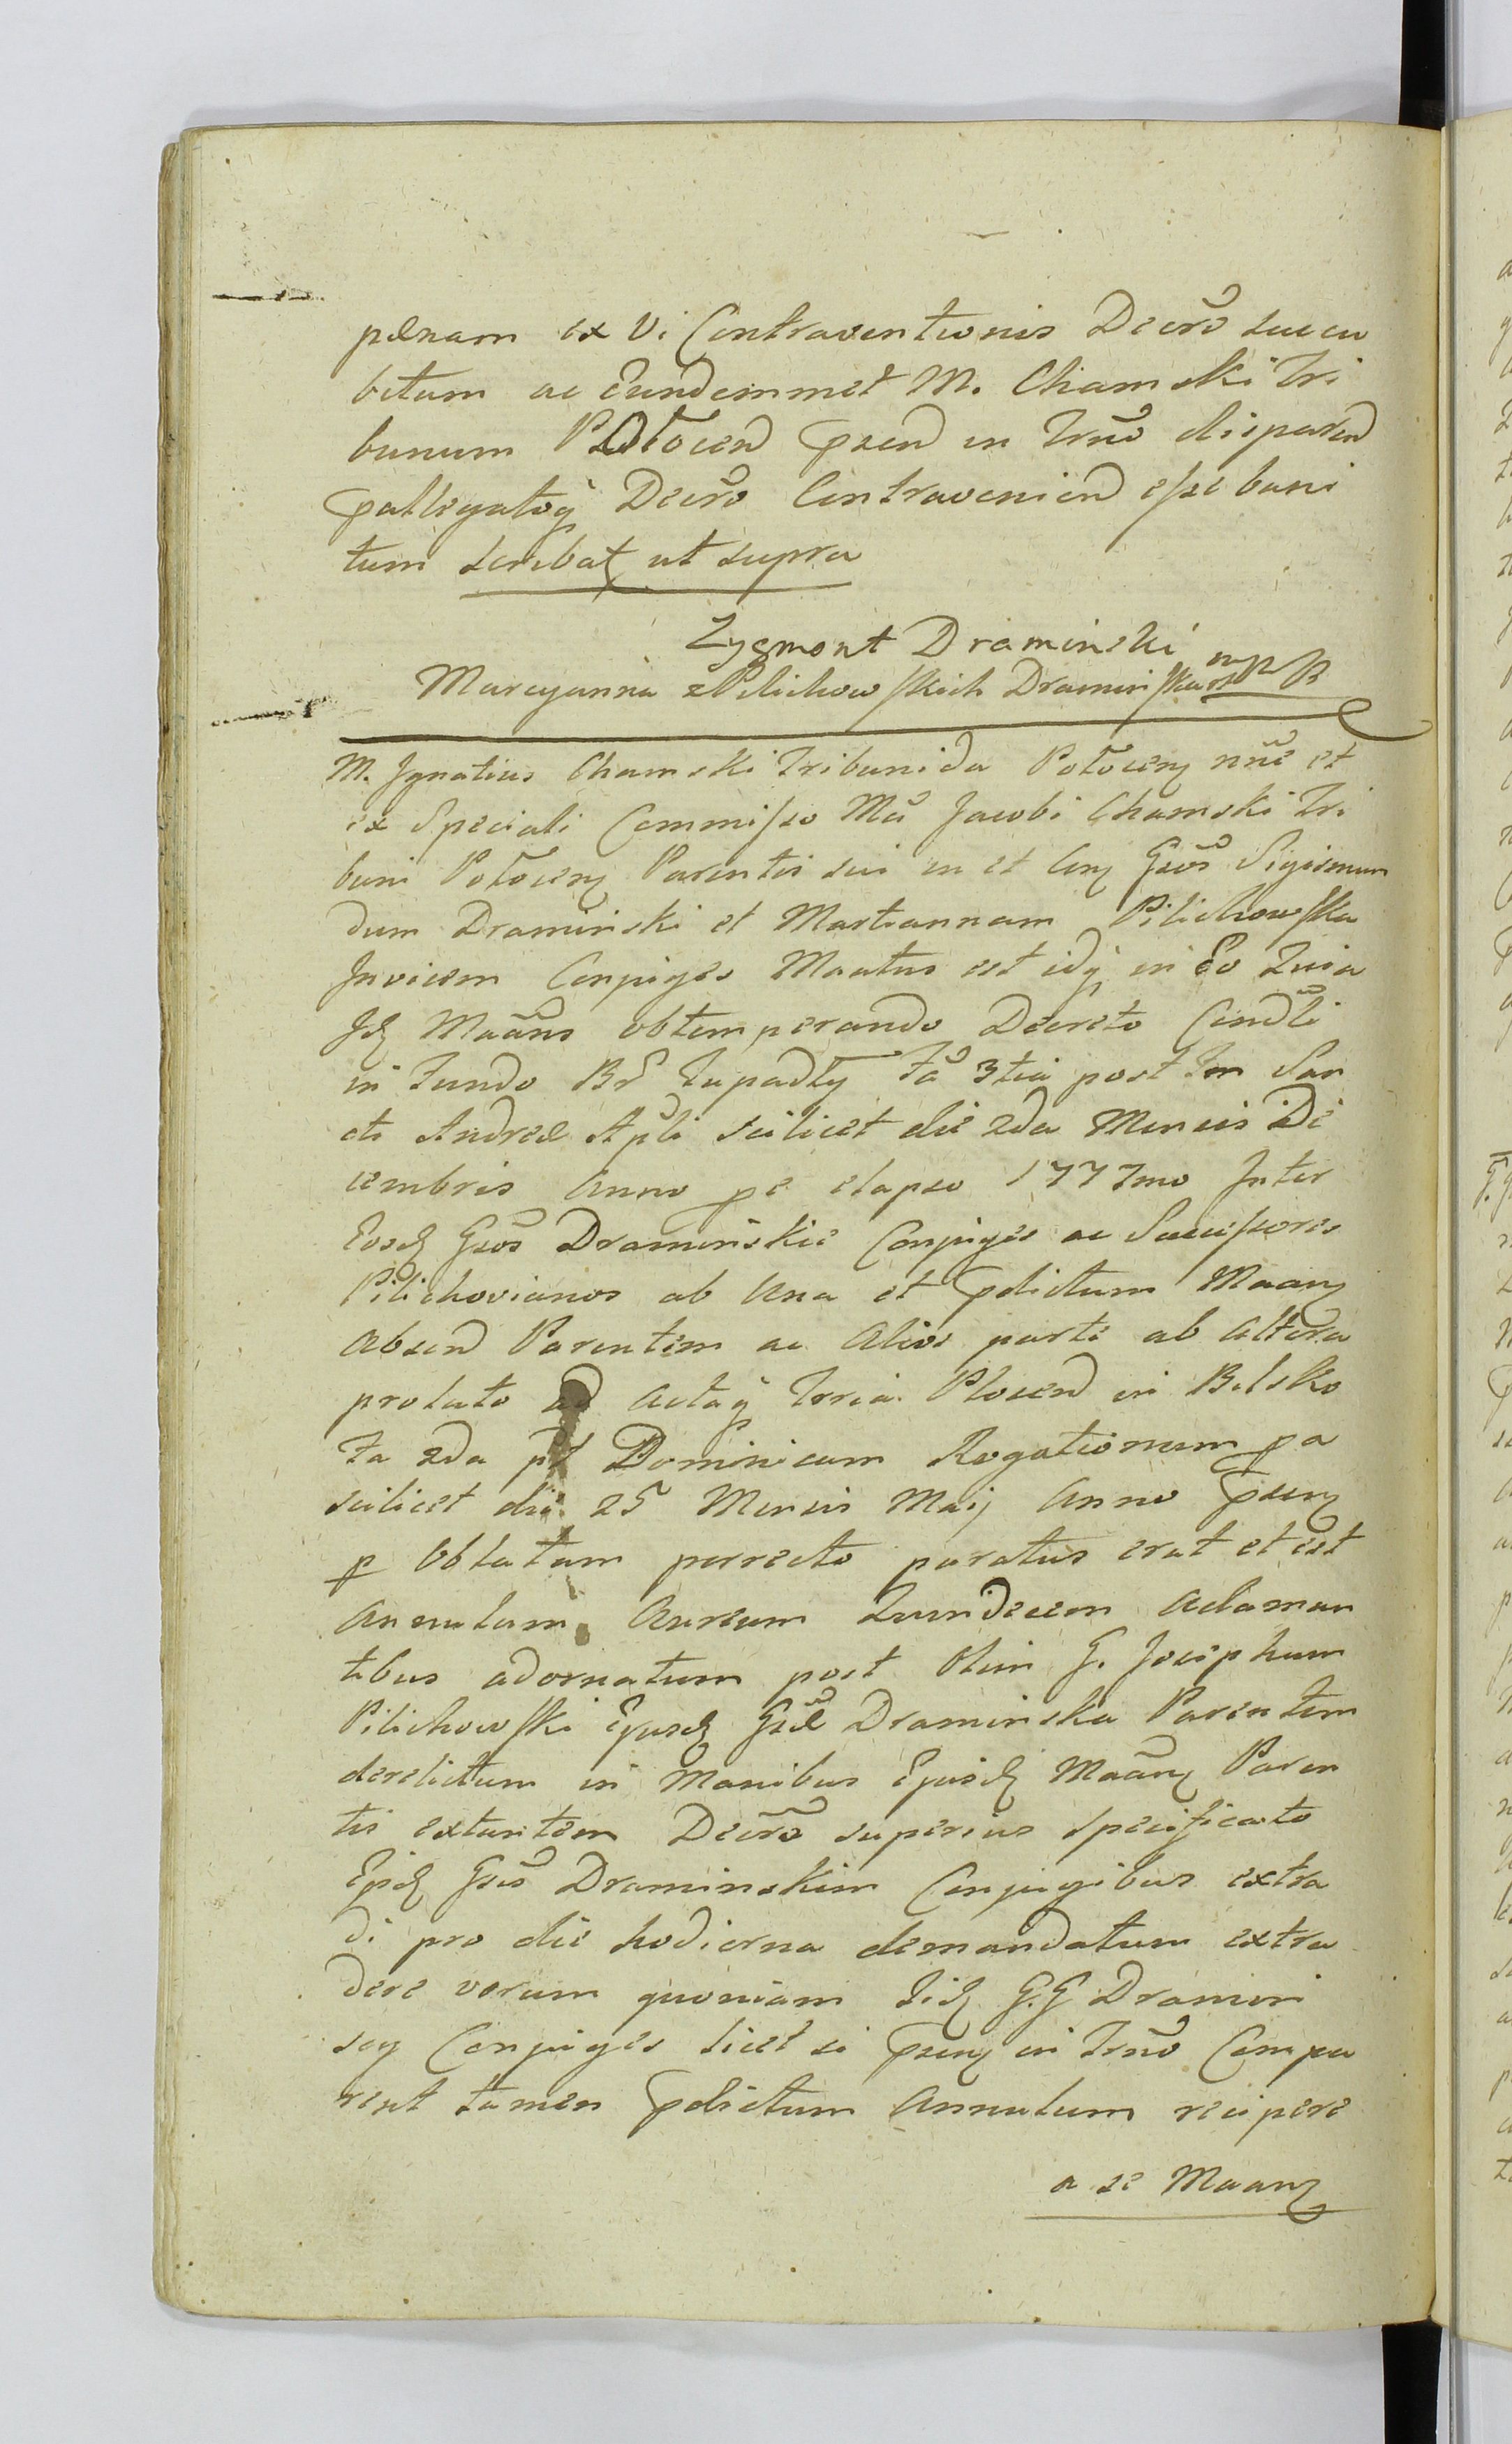 pænam ex Vi Contraventionis Decrõ succu
bitum ac Eundemmet M. Chamski Tri
bunum Plocen præsen in Trño disparen
præallegatoq Decrõ Contravenien esse bani
tum scribat ut supra
Zygmont Draminski mp
Maryanna z Pilichowskich Draminska mp
M. Ignatius Chamski Tribunida Plocen nñe et
ex Speciali Commisso Mci Jacobi Chamski Tri
buni Plocen Parentis sui in et con Gsos Sigismun
dum Draminski et Mariannam Pilichowska
Invicem Conjuges Maatus est idq in Eo Quia
Id Maans obtemperando Decreto Condli
in Fundo Br Łupadly fa 3tia post Fm San
cti Andreæ Apli scilicet die 2da Mensis De
cembris Anno pe elapso 1777mo Inter
Eosd Gsos Draminskie Conjuges ac Successores
Pilichovianos ab Una et prædictum Maan
absen Parentem ac Alios parte ab altera
prolato ad actaq Trria Plocen in Bilsko
fa 2da pt Dominicam Rogationum pa
scilicet die 25 Mensis Maij Anno præsen
p Oblatam porrecto paratus erat et est
Annulum Aureum Quindecem Adaman
tibus adornatum post Olim G. Josephum
Pilichowski Ejusd Gsæ Draminska Parentem
derelictum in Manibus Ejusd Maan Paren
tis extantem Decrõ superius specificato
Eisd Gsis Draminskim Conjugibus extra
di pro die hodierna demandatum extra
dere verum quoniam Iid G.G Dramin
scy Conjuges licet in præsen in Trño Compa
rent tamen prædictum Annulum recipere
a se Maan